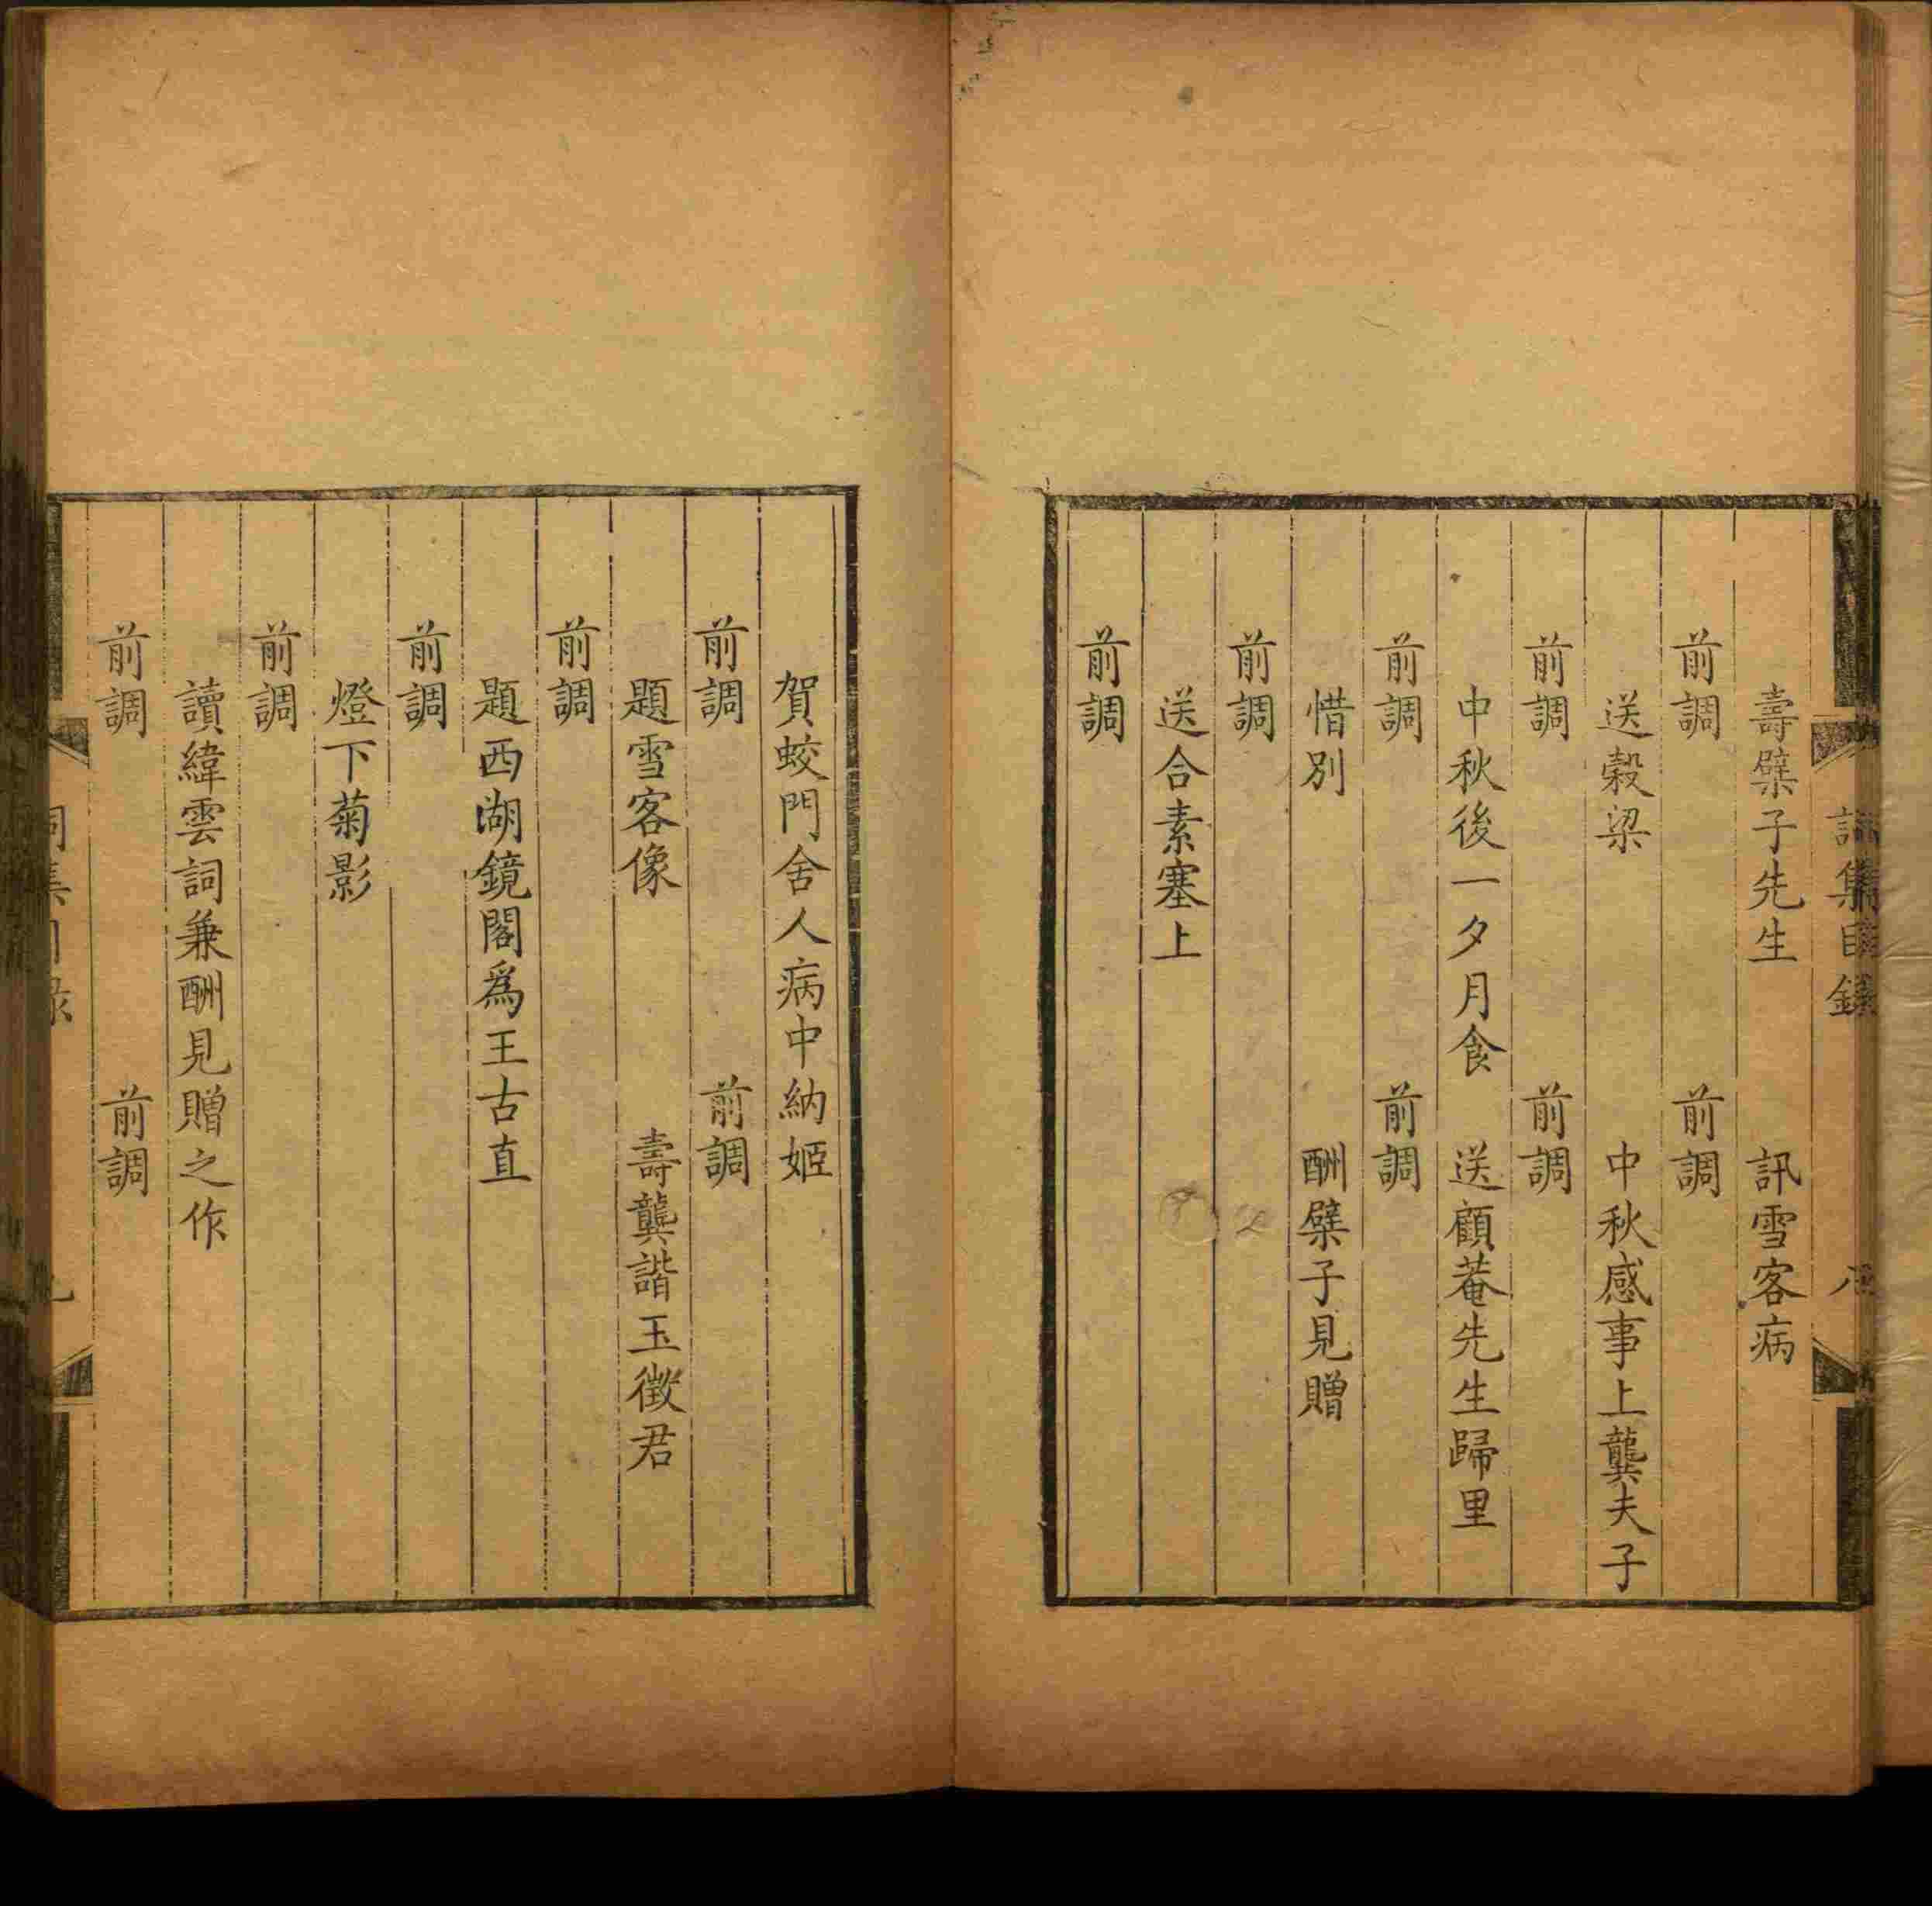 詞集目錄 八
壽檗子先生 訊雪客病
前調 前調
送穀梁 中秋感事上龔夫子
前調 前調
中秋後一夕月食 送顧菴先生歸里
前調 前調
惜別 酬檗子見贈
前調
送合素塞上
前調
賀蛟門舍人病中納姬
前調 前調
題雪客像 壽龔諧玉徵君
前調
題西湖鏡閣爲王古直
前調
燈下菊影
前調
讀緯雲詞兼酬見贈之作
前調 前調